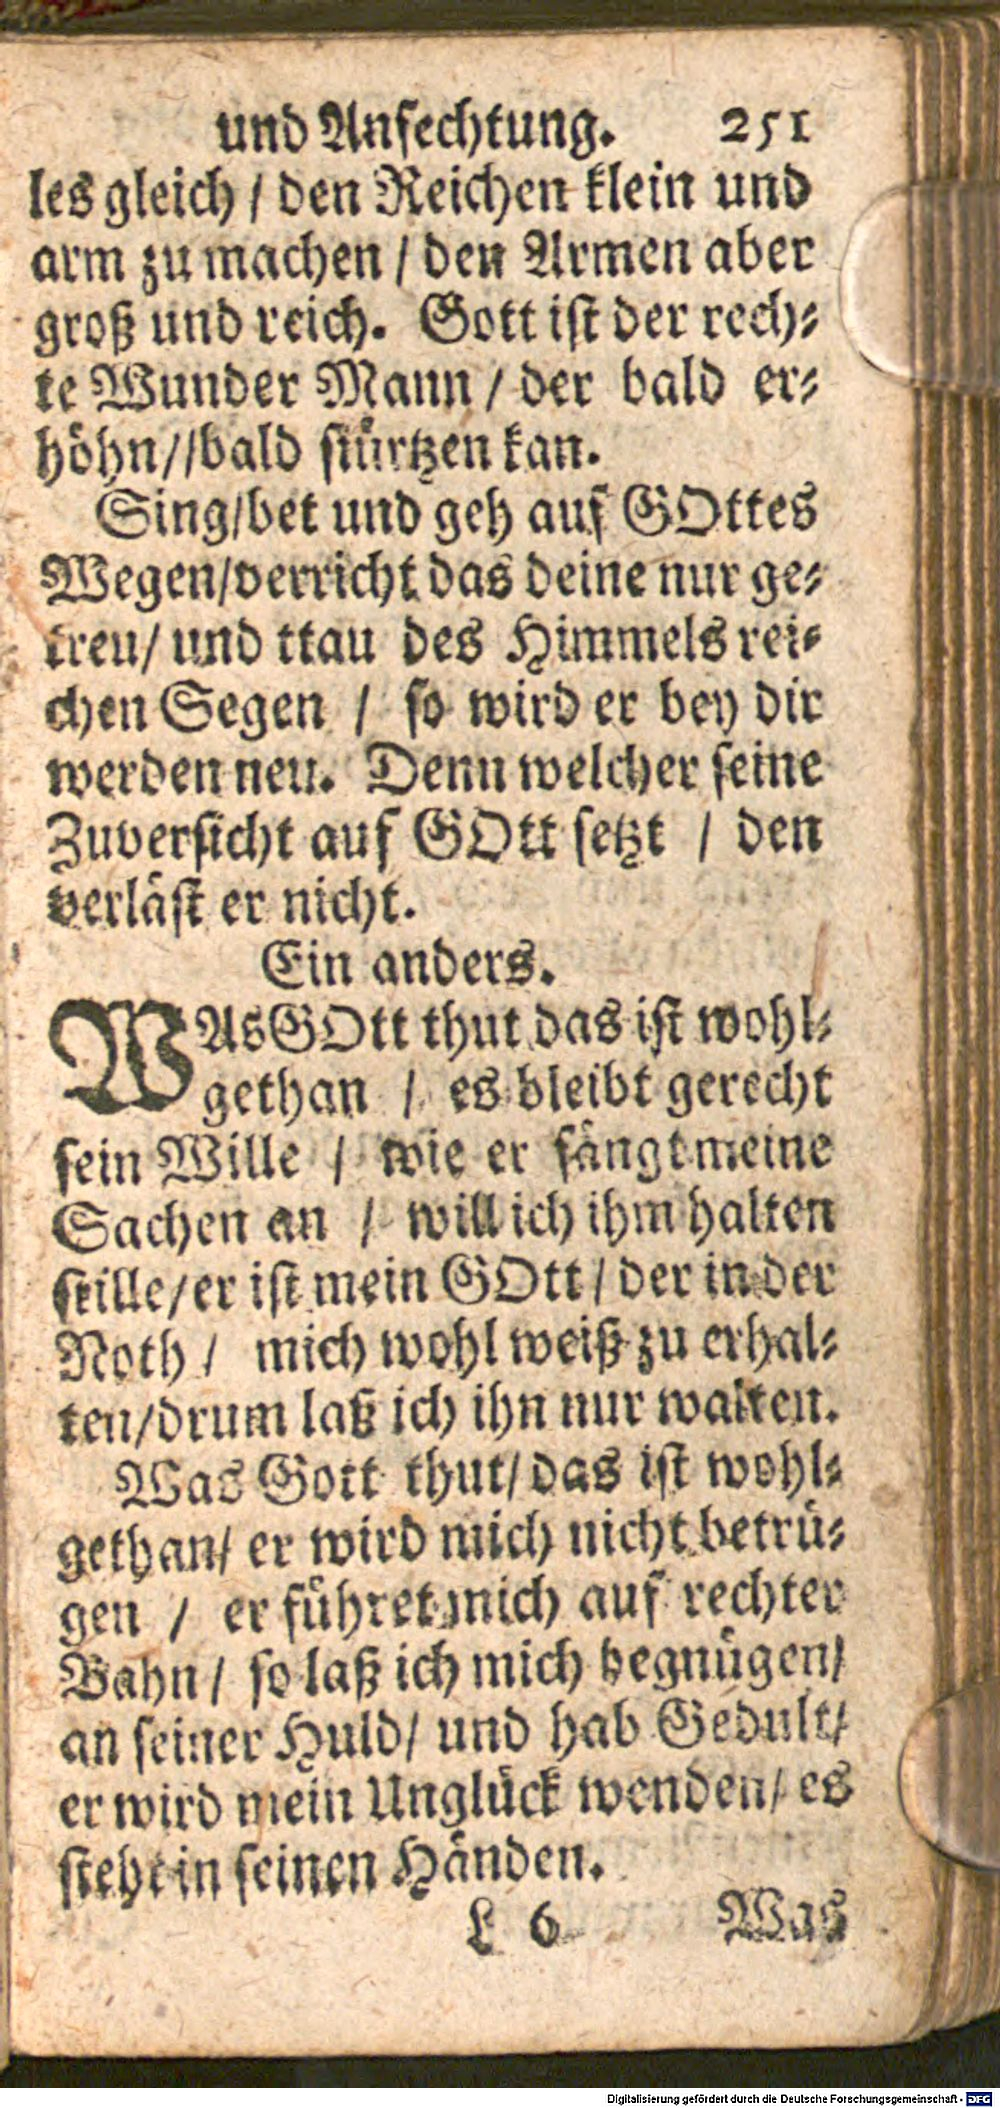 und Anfechtung. 251
les gleich / den Reichen klein und
arm zu machen / den Armen aber
groß und reich. Gott ist der rech⸗
te Wunder Mann / der bald er⸗
höhn//bald stürtzen kan.
Sing/bet und geh auf GOttes
Wegen/verricht das deine nur ge⸗
treu/ und ttau des Himmels rei⸗
chen Segen / so wird er bey dir
werden neu. Denn welcher seine
Zuversicht auf GOtt setzt / den
verläst er nicht.
Ein anders.
WAs GOtt thut das ist wohl⸗
gethan / es bleibt gerecht
sein Wille / wie er fängt meine
Sachen an / will ich ihm halten
stille/er ist mein GOtt / der in der
Noth / mich wohl weiß zu erhal⸗
ten/drum laß ich ihn nur walten.
Was Gott thut/das ist wohl⸗
gethan/ er wird mich nicht betrü⸗
gen / er führet mich auf rechter
Bahn / so laß ich mich begnügen/
an seiner Huld/ und hab Gedult/
er wird mein Unglück wenden/ es
steht in seinen Händen.
L 6 Was
Digitalisierung gefördert durch die Deutsche Forschungsgemeinschaft - DFG